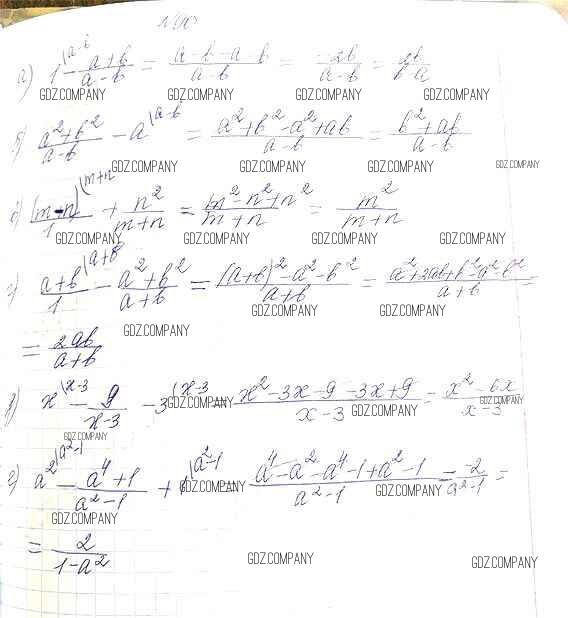 N 90
а) 1^{|a-b} - \frac{a+b}{a-b} = \frac{a-b-a-b}{a-b} = \frac{-2b}{a-b} = \frac{2b}{b-a}
GDZ.COMPANY GDZ.COMPANY GDZ.COMPANY GDZ.COMPANY
б) \frac{a^2+b^2}{a-b} - a^{|a-b} = \frac{a^2+b^2-a^2+ab}{a-b} = \frac{b^2+ab}{a-b}
GDZ.COMPANY GDZ.COMPANY GDZ.COMPANY GDZ.COMPANY
в) \frac{(m-n)^{|m+n}}{1} + \frac{n^2}{m+n} = \frac{m^2-n^2+n^2}{m+n} = \frac{m^2}{m+n}
GDZ.COMPANY GDZ.COMPANY GDZ.COMPANY GDZ.COMPANY
г) \frac{a+b^{|a+b}}{1} - \frac{a^2+b^2}{a+b} = \frac{(a+b)^2-a^2-b^2}{a+b} = \frac{a^2+2ab+b^2-a^2-b^2}{a+b} =
GDZ.COMPANY GDZ.COMPANY GDZ.COMPANY GDZ.COMPANY
= \frac{2ab}{a+b}
GDZ.COMPANY
д) x^{|x-3} - \frac{9}{x-3} - 3^{|x-3} = \frac{x^2-3x-9-3x+9}{x-3} = \frac{x^2-6x}{x-3}
GDZ.COMPANY GDZ.COMPANY GDZ.COMPANY GDZ.COMPANY
е) a^{2|a^2-1} - \frac{a^4+1}{a^2-1} + 1^{|a^2-1} = \frac{a^4-a^2-a^4-1+a^2-1}{a^2-1} = \frac{-2}{a^2-1} =
GDZ.COMPANY GDZ.COMPANY GDZ.COMPANY
= \frac{2}{1-a^2}
GDZ.COMPANY GDZ.COMPANY